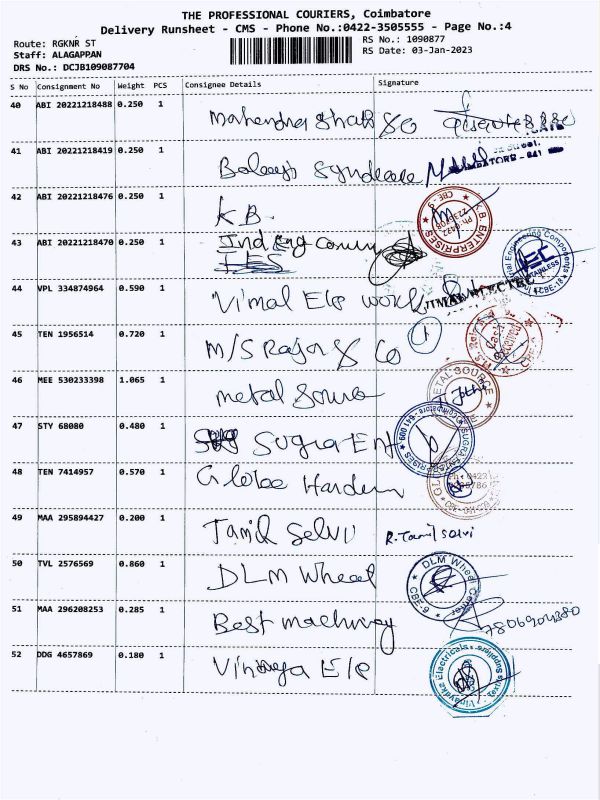 THE PROFESSIONAL COURIERS, Coimbatore
Delivery Runsheet - CMS - Phone No.:0422-3505555 - Page No.:4
Route: RGKNR ST
RS No.: 1090877
Staff: ALAGAPPAN
RS Date: 03-Jan-2023
DRS No.: DCJB109087704
S No Consignment No Weight PCS Consignee Details Signature
40 ABI 20221218488 0.250 1 Mahendra Shah & Co
41 ABI 20221218419 0.250 1
42 ABI 20221218476 0.250 1 K.B. K.B. ENTERPRISES CBE-9 Ph:0422
43 ABI 20221218470 0.250 1 Ind Eng IES Engineering Components IEC STAINLESS CBE-18
44 VPL 334874964 0.590 1 Vimal Ele works VIMAL ELECTRIC
45 TEN 1956514 0.720 1 M/S Rajor & Co 1
46 MEE 530233398 1.065 1 metal METAL SOURCE
47 STY 68080 0.480 1 Sugra Ent SUGRA ENTERPRISES Coimbatore-641 009
48 TEN 7414957 0.570 1 Globe Ph: 0422
49 MAA 295894427 0.200 1 Tamil Selvi R. Tamil selvi
50 TVL 2576569 0.860 1 DLM Wheel DLM Wheel CBE-9
51 MAA 296208253 0.285 1 Best machinery 7806904880
52 DDG 4657869 0.180 1 Vinayaga Ele Vinayaka Electricals